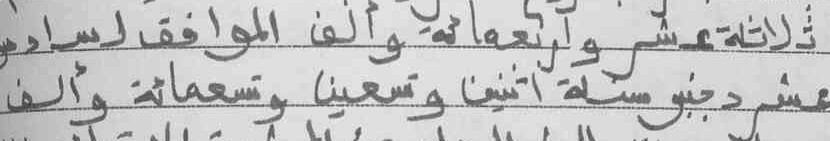 ثلاثة عشر وأربعمائة وألف الموافق لسادس
عشر دجنبر سنة اثنين وتسعين وتسعمائة وألف